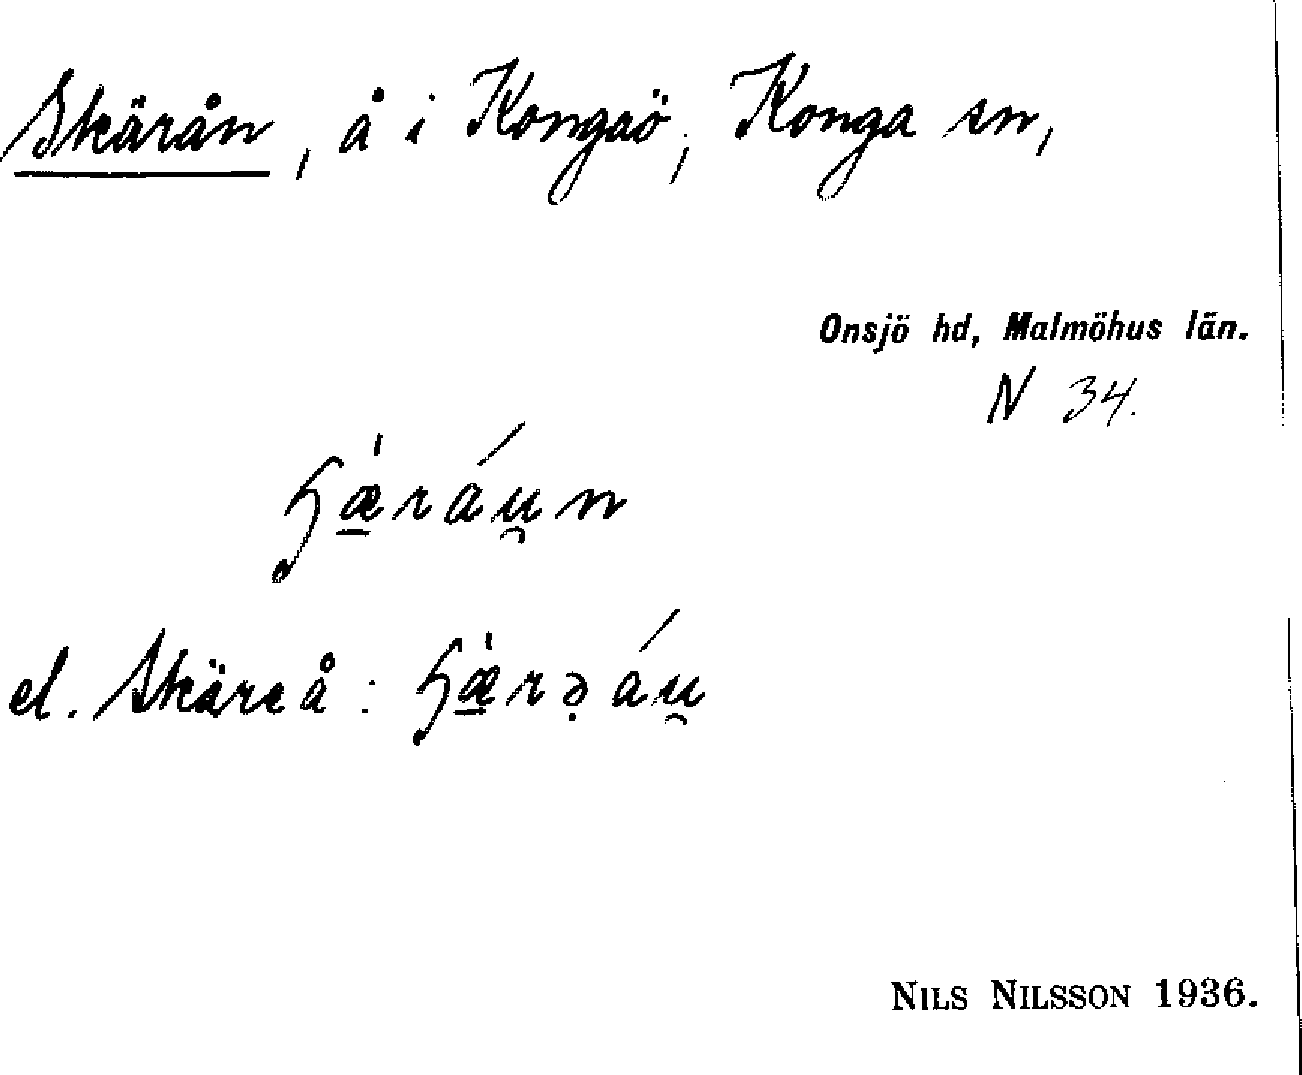 Skärån, å i Kongaö, Konga sn,
Onsjö hd, Malmöhus län.
N 34.
ʃǽ̱ráu̯n
el. Skäreå: ʃǽ̱rə̣áu̯
NILS NILSSON 1936.